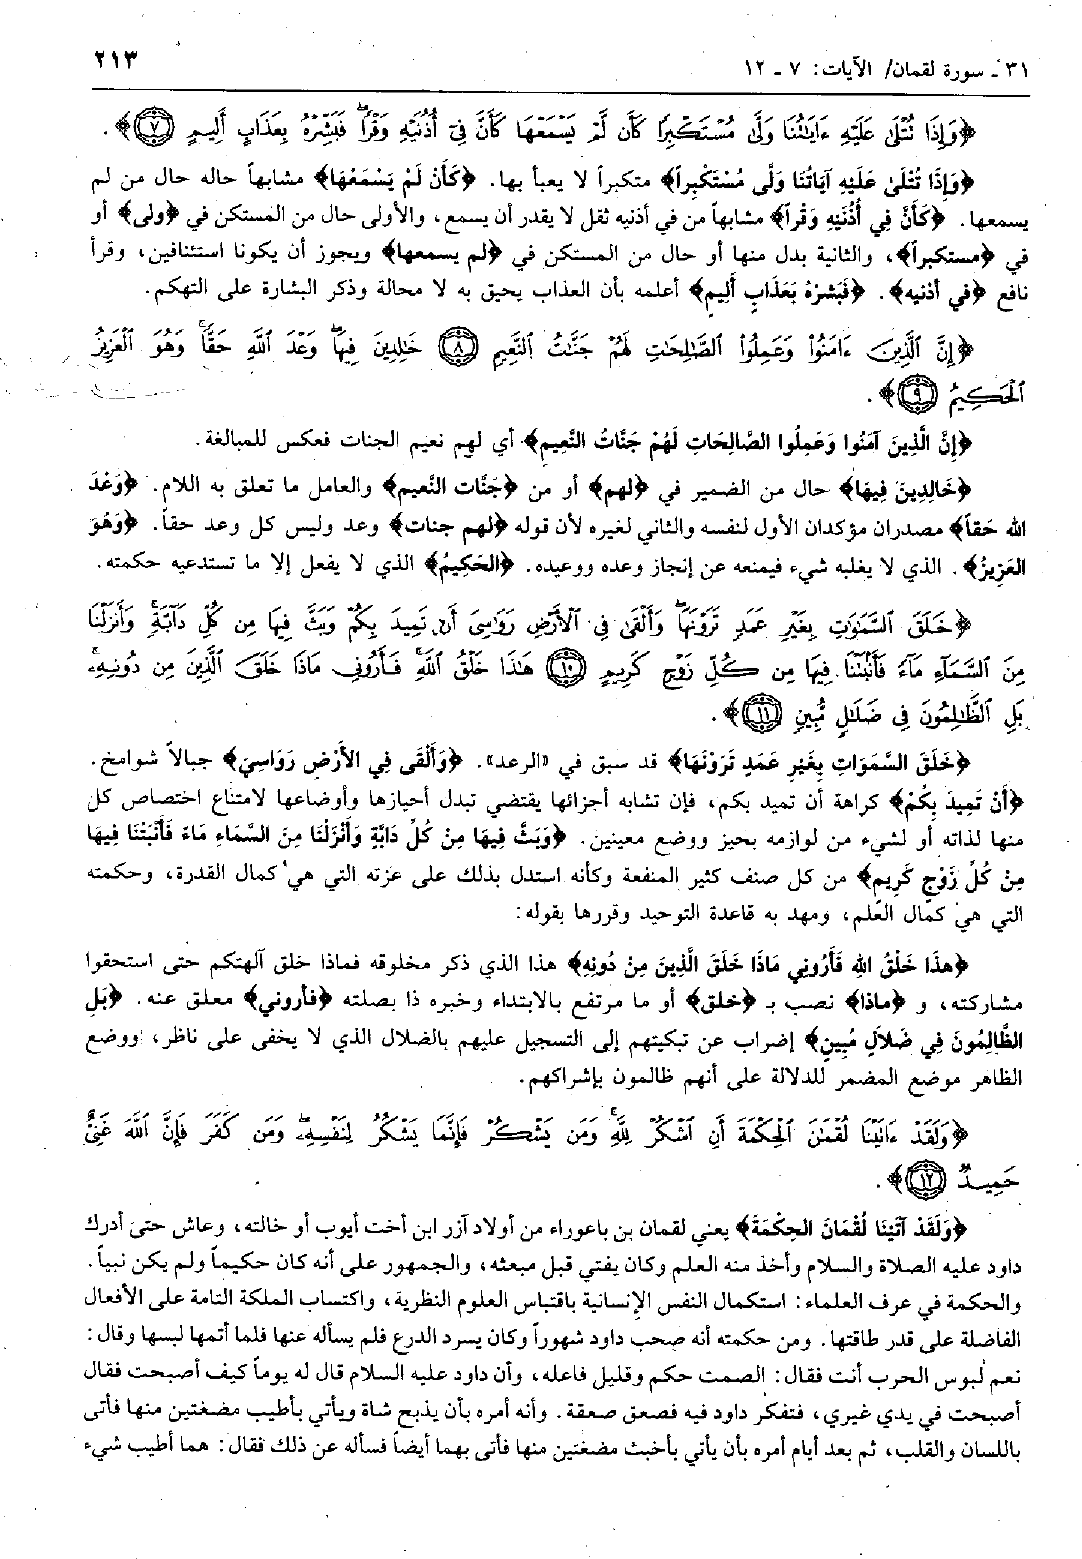 ٣١ - سورة لقمان/ الآيات: ٧ - ١٢
٢١٣
﴿وَإِذَا تُتْلَىٰ عَلَيْهِ ءَايَٰتُنَا وَلَّىٰ مُسْتَكْبِرًا كَأَن لَّمْ يَسْمَعْهَا كَأَنَّ فِىٓ أُذُنَيْهِ وَقْرًا ۖ فَبَشِّرْهُ بِعَذَابٍ أَلِيمٍ ۝٧﴾.
﴿وَإِذَا تُتْلَىٰ عَلَيْهِ آيَاتُنَا وَلَّى مُسْتَكْبِراً﴾ متكبراً لا يعبأ بها. ﴿كَأَنْ لَمْ يَسْمَعْهَا﴾ مشابهاً حاله حال من لم
يسمعها. ﴿كَأَنَّ فِي أُذُنَيْهِ وَقْراً﴾ مشابهاً من في أذنيه ثقل لا يقدر أن يسمع، والأولى حال من المستكن في ﴿ولى﴾ أو
في ﴿مستكبراً﴾، والثانية بدل منها أو حال من المستكن في ﴿لم يسمعها﴾ ويجوز أن يكونا استئنافين، وقرأ
نافع ﴿في أذنيه﴾. ﴿فَبَشِّرْهُ بَعَذَابٍ أَلِيم﴾ أعلمه بأن العذاب يحيق به لا محالة وذكر البشارة على التهكم.
﴿إِنَّ ٱلَّذِينَ ءَامَنُوا۟ وَعَمِلُوا۟ ٱلصَّٰلِحَٰتِ لَهُمْ جَنَّٰتُ ٱلنَّعِيمِ ۝٨ خَٰلِدِينَ فِيهَا ۖ وَعْدَ ٱللَّهِ حَقًّا ۚ وَهُوَ ٱلْعَزِيزُ
ٱلْحَكِيمُ ۝٩﴾.
﴿إِنَّ الَّذِينَ آمَنُوا وَعَمِلُوا الصَّالِحَاتِ لَهُمْ جَنَّاتُ النَّعِيم﴾ أي لهم نعيم الجنات فعكس للمبالغة.
﴿خَالِدِينَ فِيهَا﴾ حال من الضمير في ﴿لهم﴾ أو من ﴿جَنَّات النَّعيم﴾ والعامل ما تعلق به اللام. ﴿وَعْدَ
الله حَقاً﴾ مصدران مؤكدان الأول لنفسه والثاني لغيره لأن قوله ﴿لهم جنات﴾ وعد وليس كل وعد حقاً. ﴿وَهُوَ
العَزِيزُ﴾. الذي لا يغلبه شيء فيمنعه عن إنجاز وعده ووعيده. ﴿الحَكِيمُ﴾ الذي لا يفعل إلا ما تستدعيه حكمته.
﴿خَلَقَ ٱلسَّمَٰوَٰتِ بِغَيْرِ عَمَدٍ تَرَوْنَهَا ۖ وَأَلْقَىٰ فِى ٱلْأَرْضِ رَوَٰسِىَ أَن تَمِيدَ بِكُمْ وَبَثَّ فِيهَا مِن كُلِّ دَآبَّةٍ ۚ وَأَنزَلْنَا
مِنَ ٱلسَّمَآءِ مَآءً فَأَنۢبَتْنَا فِيهَا مِن كُلِّ زَوْجٍ كَرِيمٍ ۝١٠ هَٰذَا خَلْقُ ٱللَّهِ فَأَرُونِى مَاذَا خَلَقَ ٱلَّذِينَ مِن دُونِهِۦ ۚ
بَلِ ٱلظَّٰلِمُونَ فِى ضَلَٰلٍ مُّبِينٍ ۝١١﴾.
﴿خَلَقَ السَّمَوَاتِ بِغَيْرِ عَمَدٍ تَرَوْنَهَا﴾ قد سبق في «الرعد». ﴿وَأَلْقَى فِي الأَرْضِ رَوَاسِيَ﴾ جبالاً شوامخ.
﴿أَنْ تَمِيدَ بِكُمْ﴾ كراهة أن تميد بكم، فإن تشابه أجزائها يقتضي تبدل أحيازها وأوضاعها لامتناع اختصاص كل
منها لذاته أو لشيء من لوازمه بحيز ووضع معينين. ﴿وَبَثَّ فِيهَا مِنْ كُلِّ دَابَّةٍ وَأَنْزَلْنَا مِنَ السَّمَاءِ مَاءً فَأَنْبَتْنَا فِيهَا
مِنْ كُلِّ زَوْجٍ كَرِيم﴾ من كل صنف كثير المنفعة وكأنه استدل بذلك على عزته التي هي كمال القدرة، وحكمته
التي هي كمال العلم، ومهد به قاعدة التوحيد وقررها بقوله:
﴿هذَا خَلْقُ الله فَأَرُوني مَاذَا خَلَقَ الَّذِينَ مِنْ دُونِهِ﴾ هذا الذي ذكر مخلوقه فماذا خلق آلهتكم حتى استحقوا
مشاركته، و ﴿ماذا﴾ نصب بـ ﴿خلق﴾ أو ما مرتفع بالابتداء وخبره ذا بصلته ﴿فأروني﴾ معلق عنه. ﴿بَلِ
الظَّالِمُونَ فِي ضَلَالٍ مُبِينٍ﴾ إضراب عن تبكيتهم إلى التسجيل عليهم بالضلال الذي لا يخفى على ناظر، ووضع
الظاهر موضع المضمر للدلالة على أنهم ظالمون بإشراكهم.
﴿وَلَقَدْ ءَاتَيْنَا لُقْمَٰنَ ٱلْحِكْمَةَ أَنِ ٱشْكُرْ لِلَّهِ ۚ وَمَن يَشْكُرْ فَإِنَّمَا يَشْكُرُ لِنَفْسِهِۦ ۖ وَمَن كَفَرَ فَإِنَّ ٱللَّهَ غَنِىٌّ
حَمِيدٌ ۝١٢﴾.
﴿وَلَقَدْ آتَيْنَا لُقْمَانَ الحِكْمَةَ﴾ يعني لقمان بن باعوراء من أولاد آزر ابن أخت أيوب أو خالته، وعاش حتى أدرك
داود عليه الصلاة والسلام وأخذ منه العلم وكان يفتي قبل مبعثه، والجمهور على أنه كان حكيماً ولم يكن نبياً.
والحكمة في عرف العلماء: استكمال النفس الإنسانية باقتباس العلوم النظرية، واكتساب الملكة التامة على الأفعال
الفاضلة على قدر طاقتها. ومن حكمته أنه صحب داود شهوراً وكان يسرد الدرع فلم يسأله عنها فلما أتمها لبسها وقال:
نعم لبوس الحرب أنت فقال: الصمت حكم وقليل فاعله، وأن داود عليه السلام قال له يوماً كيف أصبحت فقال
أصبحت في يدي غيري، فتفكر داود فيه فصعق صعقة. وأنه أمره بأن يذبح شاة ويأتي بأطيب مضغتين منها فأتى
باللسان والقلب، ثم بعد أيام أمره بأن يأتي بأخبث مضغتين منها فأتى بهما أيضاً فسأله عن ذلك فقال: هما أطيب شيء